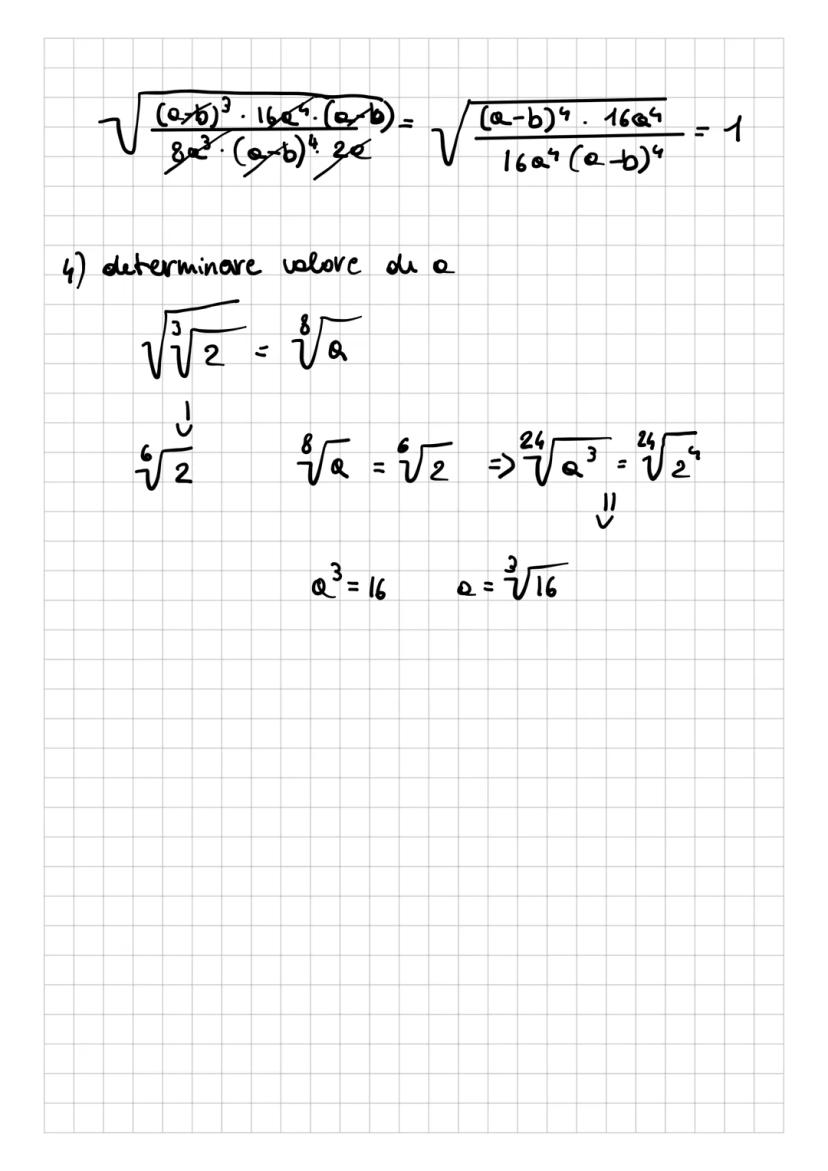 √((a-b)³ · 16a⁴ · (a-b) / 8a³ · (a-b)⁴ · 2a) = √((a-b)⁴ · 16a⁴ / 16a⁴ (a-b)⁴) = 1
4) determinare valore di a
√(³√2) = ⁸√a
⇓
⁶√2 ⁸√a = ⁶√2 => ²⁴√a³ = ²⁴√2⁴
⇓
a³ = 16 a = ³√16